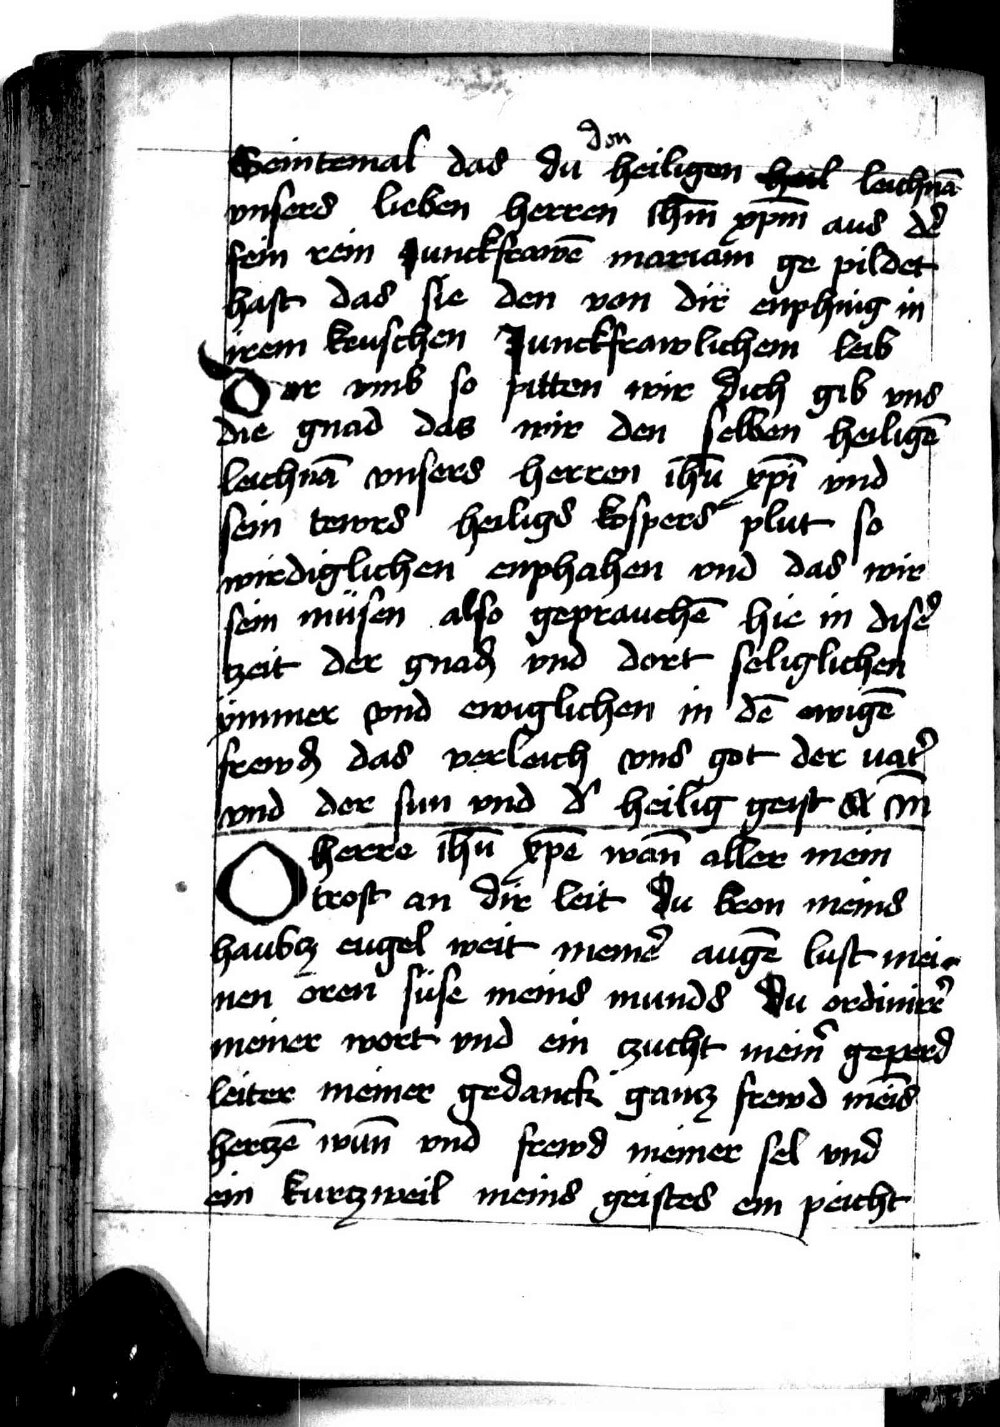 den
Seintemal das du heiligen heil leichnā
vnsers lieben herren ihm̄ xp̄m aus d̄e
sein rein Junckfrawē mariam ge pildet
hast das sie den von dir enphing in
irem keuschen Junckfrawlichem leib
Dar vmb so pitten wir dich gib vns
die gnad das wir den selben heiligē
leichnā vnsers herren ihū xp̄i vnd
sein tewrs heiligs kospers plut so
wirdiglichen enphahen vnd das wir
sein müsen also geprauchē hie in diser̄
zeit der gnad vnd dort seliglichen
ymmer vnd ewiglichen in dē ewigē
frewd das verleich vns got der vatr̄
vnd der sun vnd d' heilig geist
O herre ihū xp̄e wan̄ aller mein
trost an dir leit Du kron meins
haubtz engel weit meinē augē lust mei-
nen oren süse meins munds Du ordinirer̄
meiner wort vnd ein zucht mein' geperd
leiter meiner gedanck gantz frewd meīs
hertzē wun̄ vnd frewd meiner sel vnd
ein kurtzweil meins geistes ein peicht